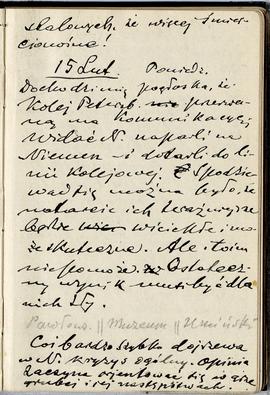 skalonych, że więcej
15 Lut. Poniedz.
Dochodzi mię pogłoska, że
kolej Petersb. przerwa-
ną ma komunikację.
Widać N. naparli na
Niemen – i dotarli do li-
nii kolejowej. Spodzie-
wać się można było, że
natarcie ich
będzie wściekłe i mo-
że skuteczne. Ale i to im
nie pomoże. Ostatecz-
ny wynik musi być dla
nich zły.
|| Muzeum ||
Coś bardzo szybko dojrzewa
w N. kryzys ogólny. Opinia
zaczyna orjentować się w
i jej następstwach.